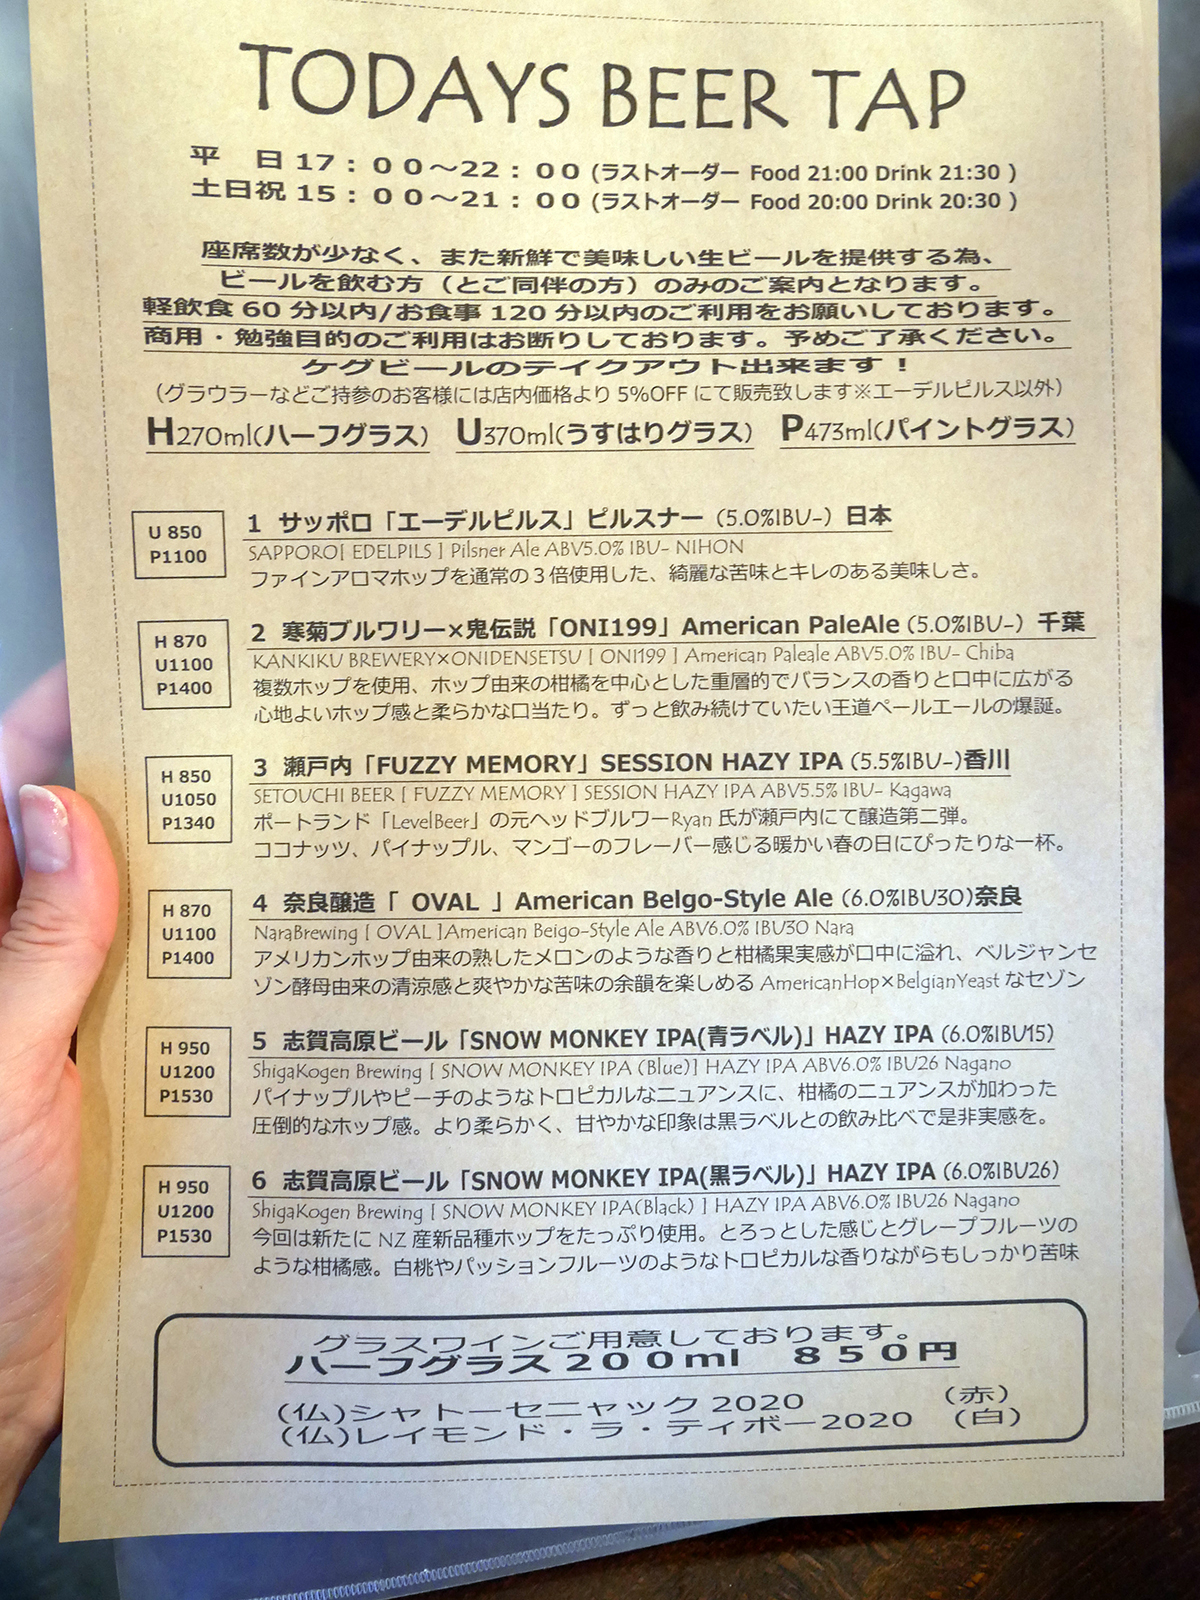 TODAYS BEER TAP
平　日 17：００～22：００(ラストオーダー Food 21:00 Drink 21:30 )
土日祝 15：００～21：００(ラストオーダー Food 20:00 Drink 20:30 )
座席数が少なく、また新鮮で美味しい生ビールを提供する為、
ビールを飲む方（とご同伴の方）のみのご案内となります。
軽飲食 60 分以内/お食事 120 分以内のご利用をお願いしております。
商用・勉強目的のご利用はお断りしております。予めご了承ください。
ケグビールのテイクアウト出来ます！
（グラウラーなどご持参のお客様には店内価格より 5%OFF にて販売致します※エーデルピルス以外）
H270ml(ハーフグラス)　U370ml(うすはりグラス)　P473ml(パイントグラス)
U 850
P1100
1 サッポロ「エーデルピルス」ピルスナー（5.0%IBU-）日本
SAPPORO[ EDELPILS ] Pilsner Ale ABV5.0% IBU- NIHON
ファインアロマホップを通常の３倍使用した、綺麗な苦味とキレのある美味しさ。
H 870
U1100
P1400
2 寒菊ブルワリー×鬼伝説「ONI199」American PaleAle（5.0%IBU-）千葉
KANKIKU BREWERY×ONIDENSETSU [ ONI199 ] American Paleale ABV5.0% IBU- Chiba
複数ホップを使用、ホップ由来の柑橘を中心とした重層的でバランスの香りと口中に広がる
心地よいホップ感と柔らかな口当たり。ずっと飲み続けていたい王道ペールエールの爆誕。
H 850
U1050
P1340
3 瀬戸内「FUZZY MEMORY」SESSION HAZY IPA（5.5%IBU-)香川
SETOUCHI BEER [ FUZZY MEMORY ] SESSION HAZY IPA ABV5.5% IBU- Kagawa
ポートランド「LevelBeer」の元ヘッドブルワーRyan 氏が瀬戸内にて醸造第二弾。
ココナッツ、パイナップル、マンゴーのフレーバー感じる暖かい春の日にぴったりな一杯。
H 870
U1100
P1400
4 奈良醸造「 OVAL 」American Belgo-Style Ale（6.0%IBU30)奈良
NaraBrewing [ OVAL ]American Beigo-Style Ale ABV6.0% IBU30 Nara
アメリカンホップ由来の熟したメロンのような香りと柑橘果実感が口中に溢れ、ベルジャンセ
ゾン酵母由来の清涼感と爽やかな苦味の余韻を楽しめる AmericanHop×BelgianYeast なセゾン
H 950
U1200
P1530
5 志賀高原ビール「SNOW MONKEY IPA(青ラベル)」HAZY IPA（6.0%IBU15)
ShigaKogen Brewing [ SNOW MONKEY IPA (Blue)] HAZY IPA ABV6.0% IBU26 Nagano
パイナップルやピーチのようなトロピカルなニュアンスに、柑橘のニュアンスが加わった
圧倒的なホップ感。より柔らかく、甘やかな印象は黒ラベルとの飲み比べで是非実感を。
H 950
U1200
P1530
6 志賀高原ビール「SNOW MONKEY IPA(黒ラベル)」HAZY IPA（6.0%IBU26)
ShigaKogen Brewing [ SNOW MONKEY IPA(Black) ] HAZY IPA ABV6.0% IBU26 Nagano
今回は新たに NZ 産新品種ホップをたっぷり使用。とろっとした感じとグレープフルーツの
ような柑橘感。白桃やパッションフルーツのようなトロピカルな香りながらもしっかり苦味
グラスワインご用意しております。
ハーフグラス２００ml　８５０円
(仏)シャトーセニャック 2020　（赤）
(仏)レイモンド・ラ・ティボー2020　（白）